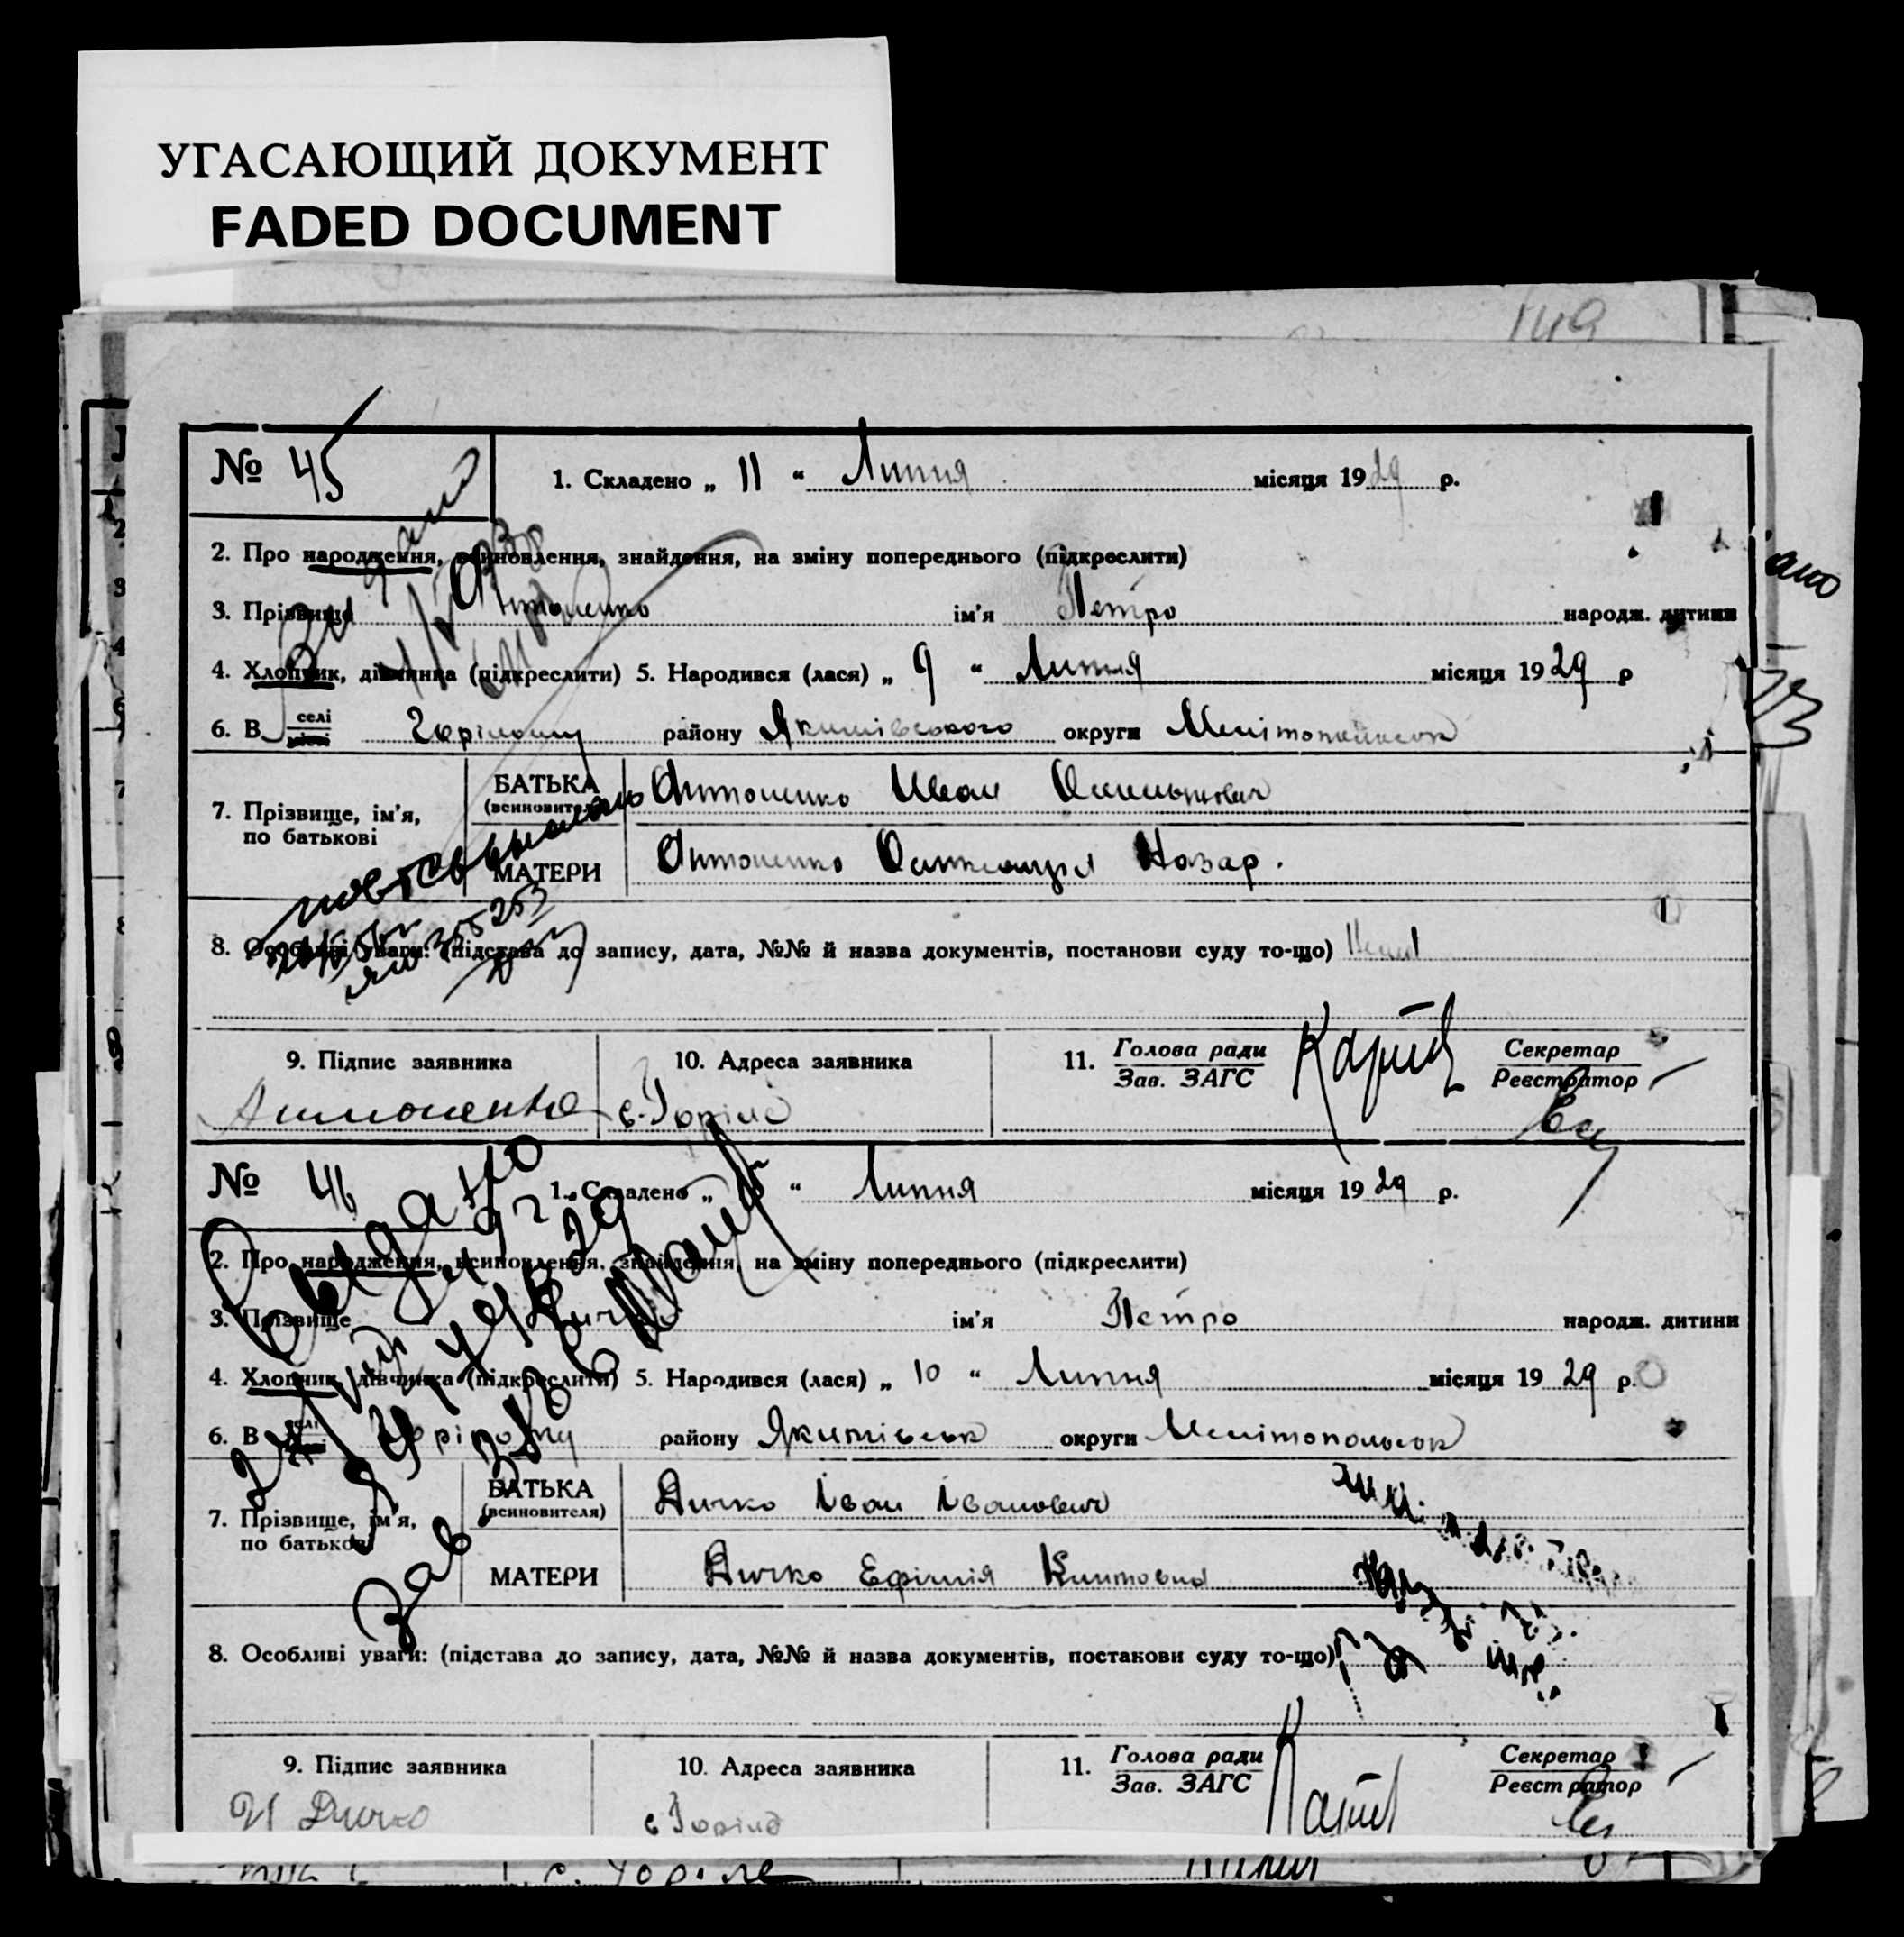 УГАСАЮЩИЙ ДОКУМЕНТ
FADED DOCUMENT
149
№ 45
1. Складено „ 11 “ Липня місяця 1929 р.
2. Про народження, всиновлення, знайдення, на зміну попереднього (підкреслити)
3. Прізвище Антоненко ім’я Петро народж. дитини
4. Хлопчик, дівчинка (підкреслити) 5. Народився (лася) „ 9 “ Липня місяця 1929 р
6. В селі місті Горілому району Якимівського округи
7. Прізвище, ім’я, по батькові
БАТЬКА (всиновителя) Антоненко Иван
МАТЕРИ Антоненко Назар.
повторно
8. Особливі уваги: (підстава до запису, дата, №№ й назва документів, постанови суду то-що)
9. Підпис заявника
10. Адреса заявника
11. Голова ради Зав. ЗАГС
Секретар Реєстратор
Антоненко
с. Горіле
№ 46
1. Складено „ “ Липня місяця 1929 р.
Выдано
2. Про народження, всиновлення, знайдення, на зміну попереднього (підкреслити)
3. Прізвище Дичко ім’я Петро народж. дитини
4. Хлопчик, дівчинка (підкреслити) 5. Народився (лася) „ 10 “ Липня місяця 1929 р.
6. В селі Горілому району Якимівськ округи Мелітопольськ
7. Прізвище, ім’я, по батькові
БАТЬКА (всиновителя) Дичко Іван Іванович
МАТЕРИ Дичко Ефімія
Зав
8. Особливі уваги: (підстава до запису, дата, №№ й назва документів, постакови суду то-що)
9. Підпис заявника
10. Адреса заявника
11. Голова ради Зав. ЗАГС
Секретар Реєстратор
И Дичко
с Горіле
с. Горіле